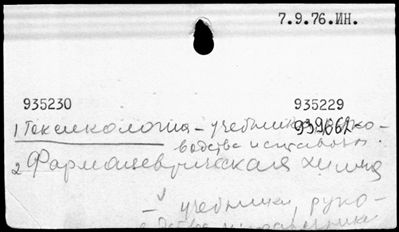 7.9.76.ИН.
935230 935229
1 Токсикология – учебники, руко-
939662
водства и справочн.
2 Фармацевтическая химия
– учебники, руко-
водства и справочники